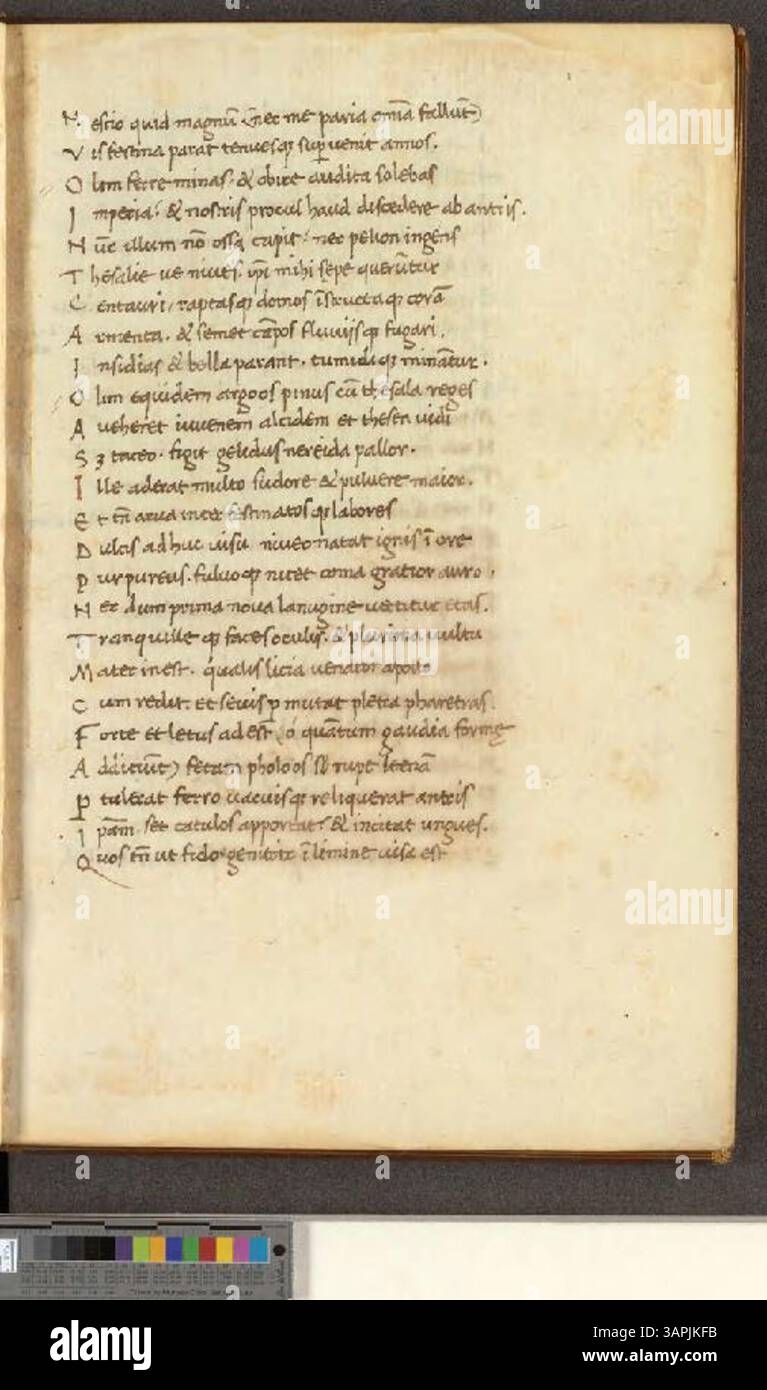 N escio quid magnū (nec me paria om̄ia fallūt)
V is festina parat tenuesq; sup̱uenit annos.
O lim ferre minas. & obire audita solebas
I mperia. & nostris procul haud discedere ab antris.
N ūc illum nō ossa capit. nec pelion ingens
T hesalie ue niues. ip̄i mihi sepe querūtur
C entauri, raptasq; domos ī
A rmenta. & semet cāpos fluuiisq; fugari.
I nsidias & bella parant. tumidiq; minātur.
O lim equidem argoos pinus cū thesala reges
A ueheret iuuenem alcidem et thesea uidi
S ꝫ taceo. figit gelidus nereida pallor.
I lle aderat multo sudore & puluere maior.
E t tn̄ arua inter festinatosq; labores
D ulcis adhuc uisu niueo natat ignis ī ore
P urpureus. fuluoq; nitet coma gratior auro.
N ec dum prima noua lanugine uertitur etas.
T ranquilleq; faces oculis. & plurima uultu
M ater inest. qualis licia uenator apollo
C um redit. et seuis p̱mutat plectra pharetras.
F orte et letus adest (o quātum gaudia forme
A ddiciūt) fetam pholoes sub rupe leenā
P tulerat ferro uacuisq; reliquerat antris
I pām. set catulos apportat. & incitat ungues.
Q uos tn̄ ut fido genitrix ī limine uisa est
alamy
alamy
alamy
alamy
Image ID: 3APJKFB
www.alamy.com